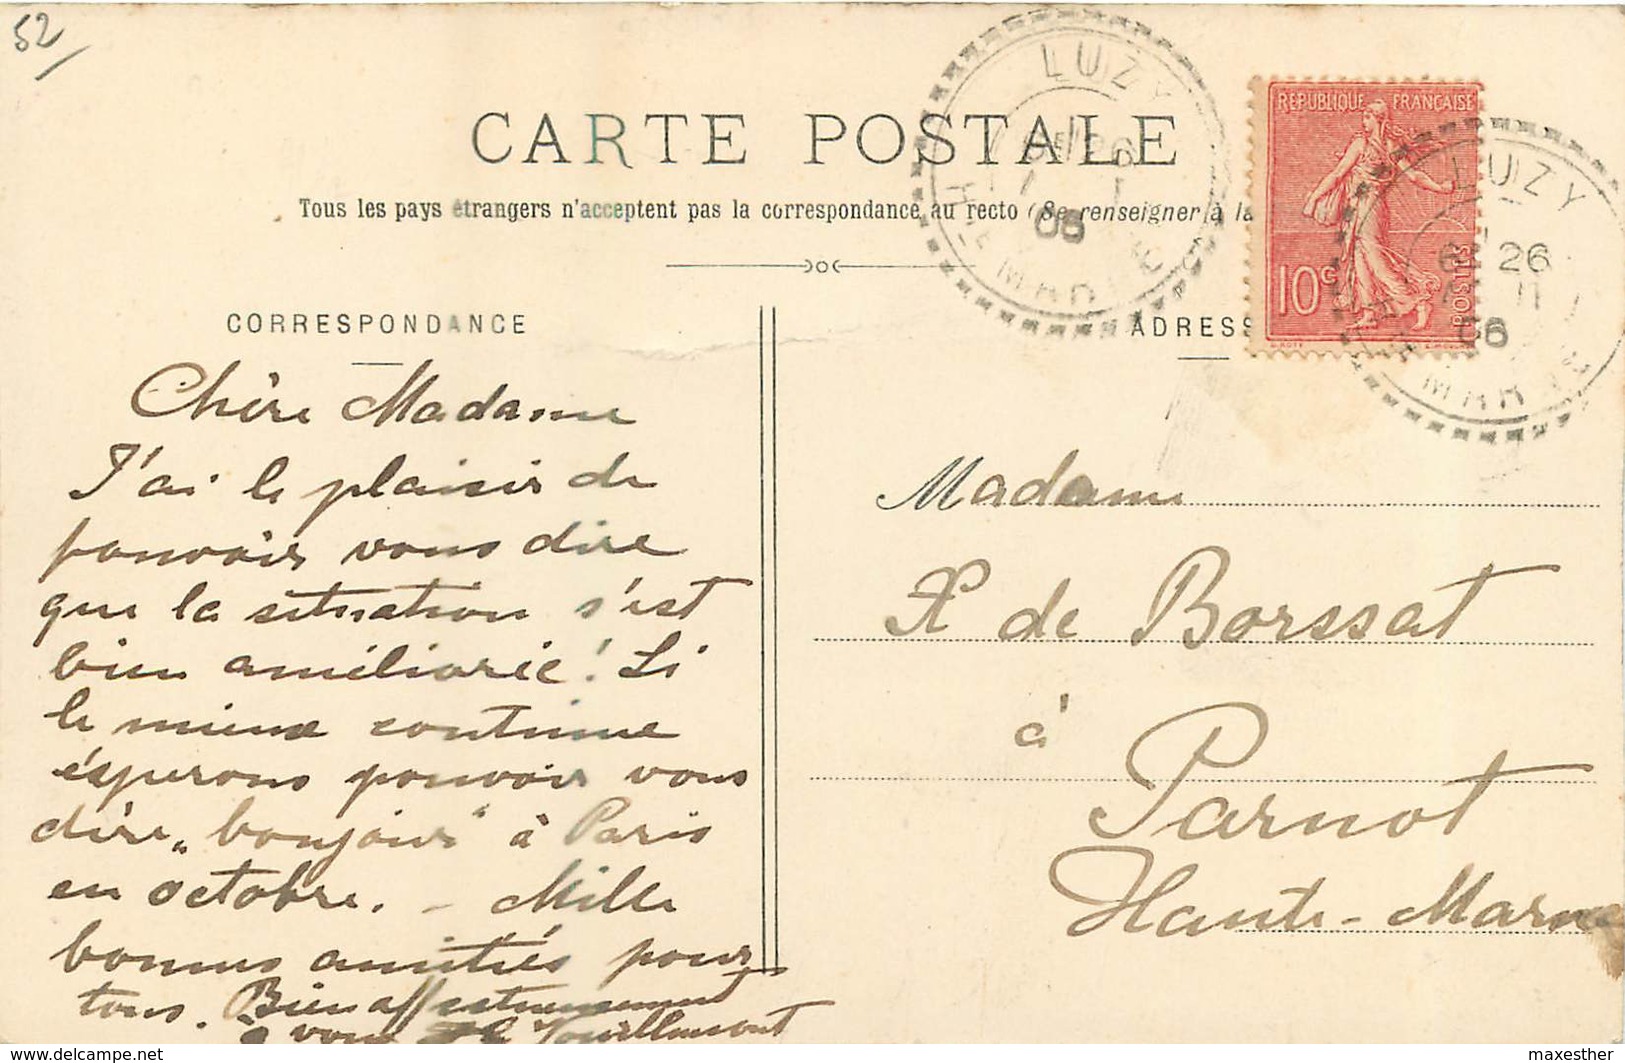 52
CARTE POSTALE
Tous les pays étrangers n'acceptent pas la correspondance au recto (Se renseigner à la
LUZY
06
Hte MARNE
REPUBLIQUE FRANÇAISE
10c
POSTES
LUZY
26
11
06
MARNE
CORRESPONDANCE
ADRESS
Chère Madame
J'ai le plaisir de
pouvoir vous dire
que la situation s'est
bien améliorée! Si
le mieux continue
éspérons pouvoir vous
dire „bonjour" à Paris
en octobre. – Mille
bonnes amitiés pour
tous. Bien affectueusement
à vous
Madame
de Borssat
à
Parnot
Haute-Marne
https://www.delcampe.net
maxesther